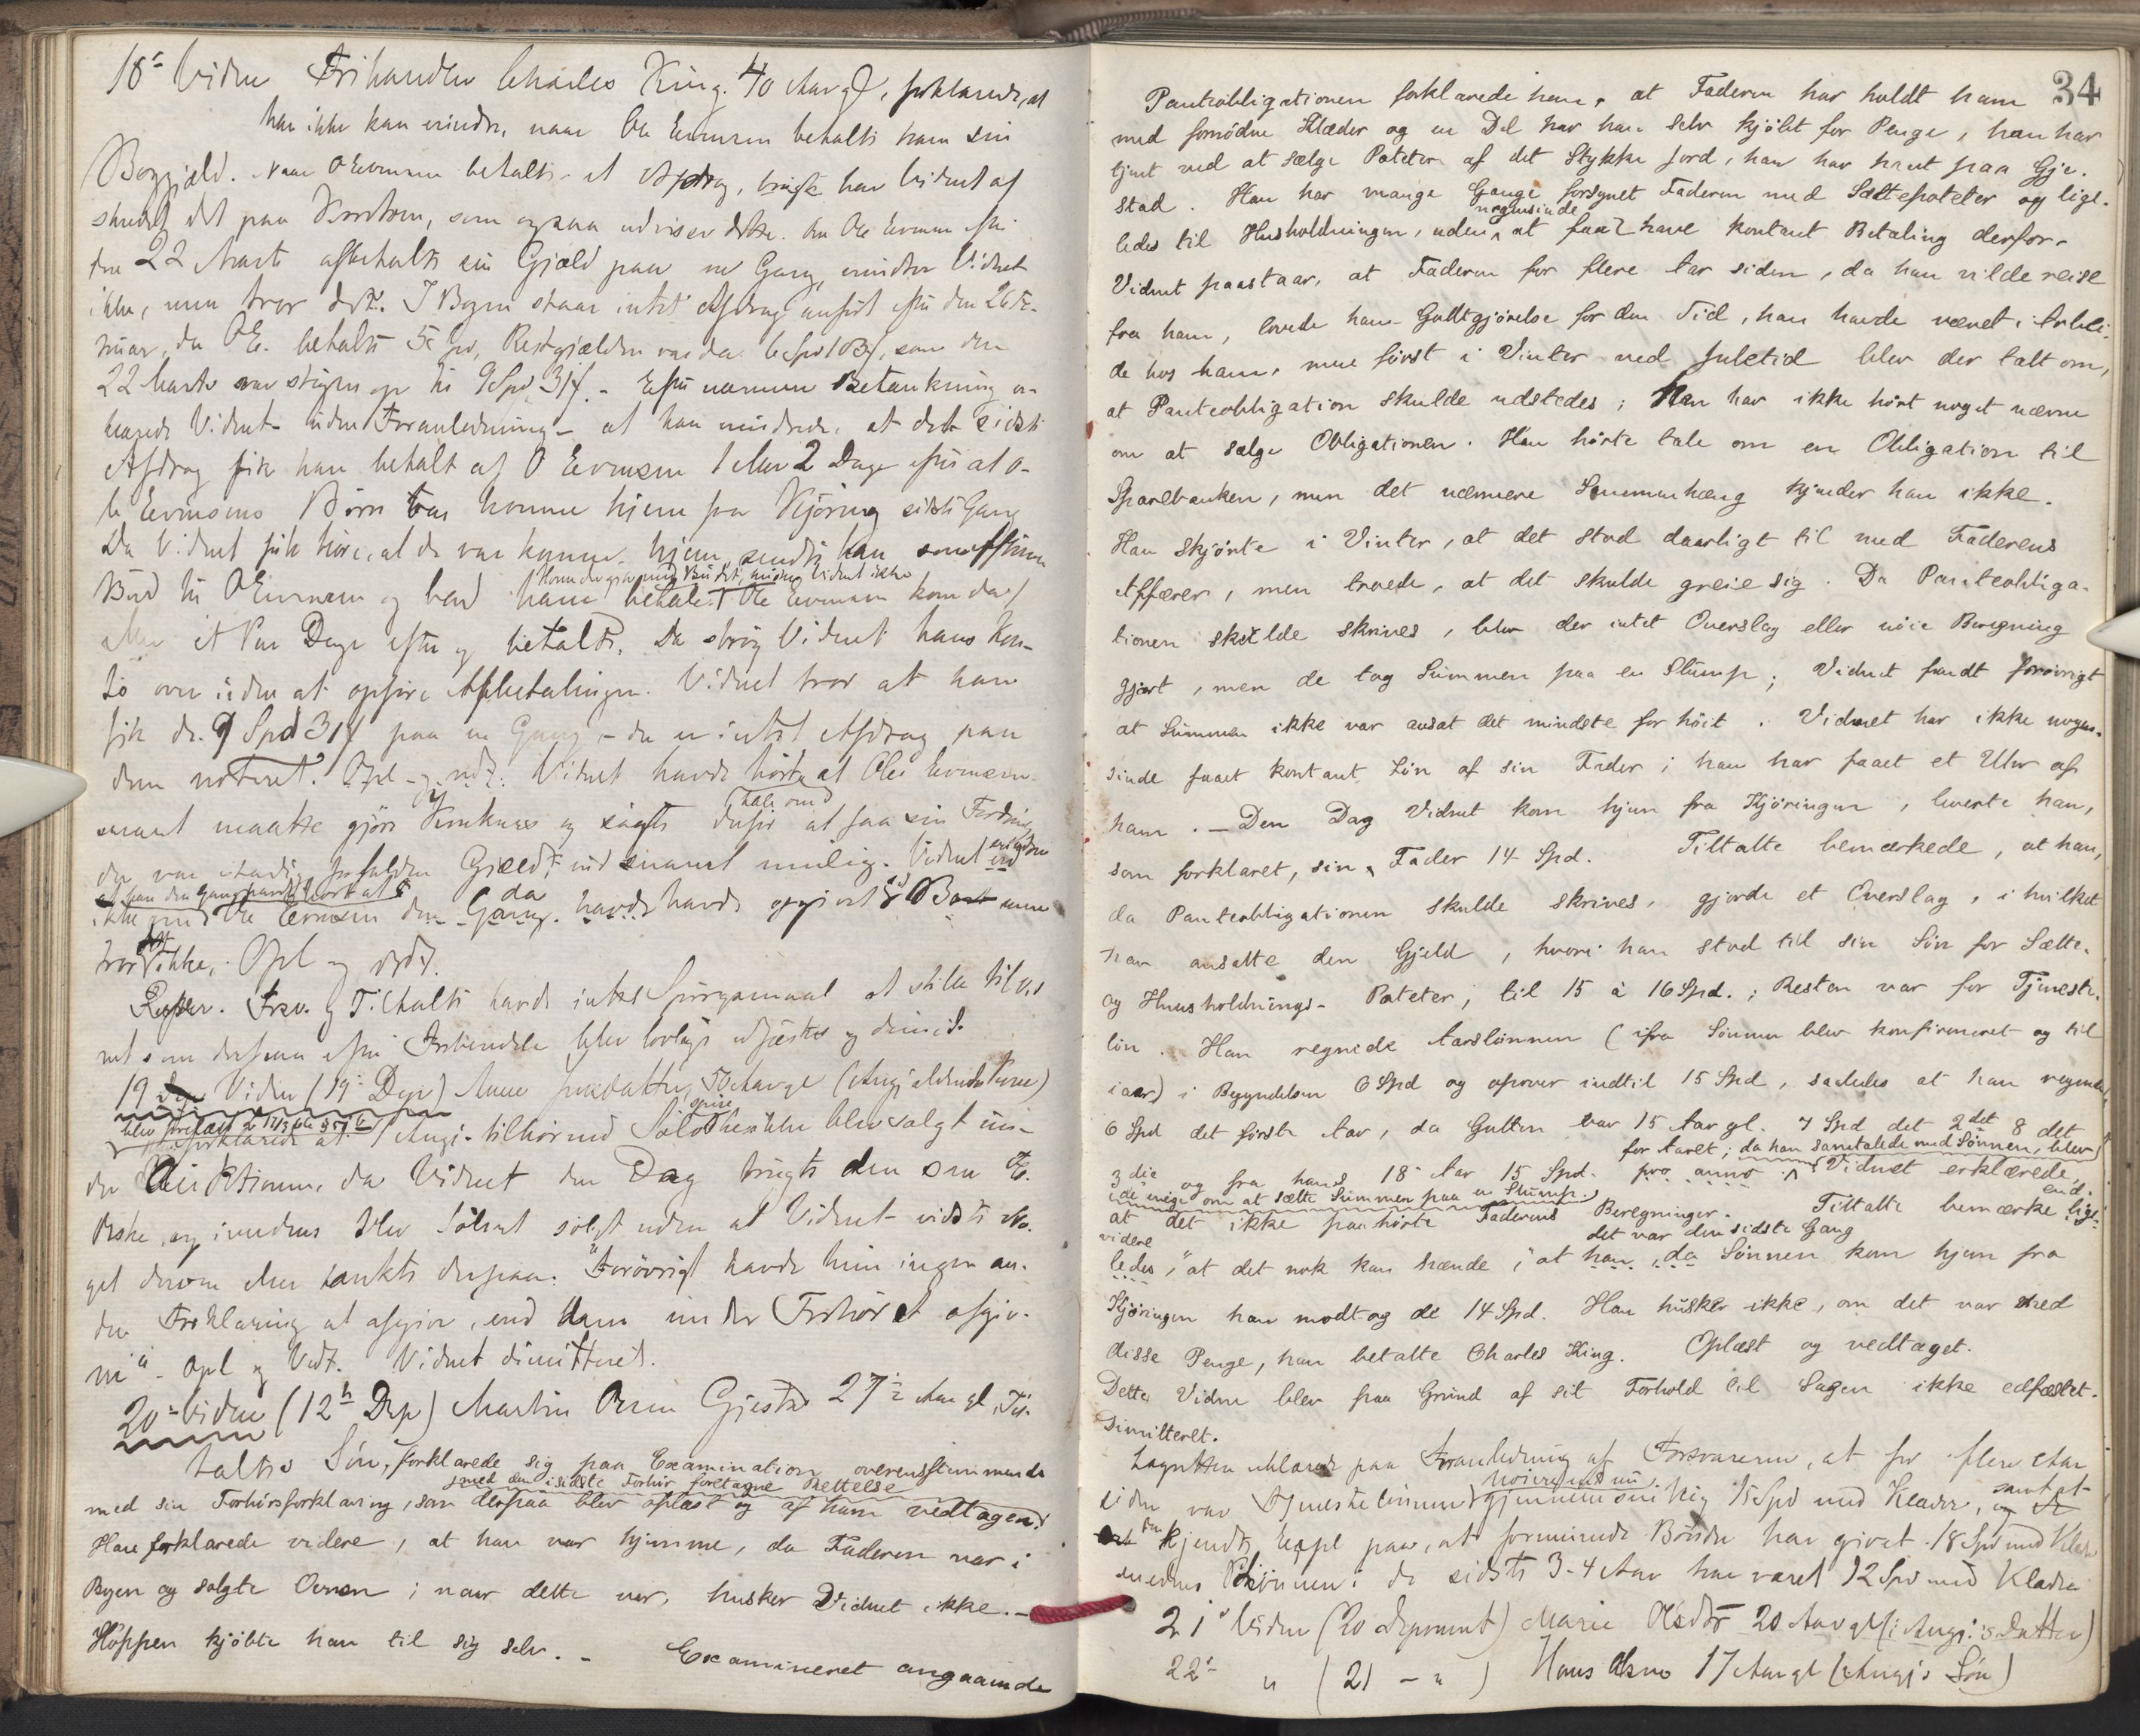 18de Vidne Frihandler Charles King. 40 Aar gl, forklarede, at
han ikke kan erindre, naar Ole Evensen betalte ham sin
Boggjæld. Naar O Evensen betalte et Afdrag, brugte han Vidnet af
skrevet det paa Kontoen, som ogsaa udviser dette. Om Ole Evensen efter
den 22 Marts afbetalte sin Gjæld paa en Gang, erindrer Vidnet
ikke, men tror dette. I Bogen staar intet Afdrag anført efter den 26 Fe-
bruar, da OE. betalte 5 Spd, Restgjælden var da 6 Spd 103 s, som den
22 Marts var stegen op til 9 Spd 31 s. - Efter nærmere Betænkning er-
klærede Vidnet - uden Foranledning - at han erindrede, at det sidste
Afdrag fik han betalt af O Evensen 1 eller 2 Dage efter at O-
le Evensens Børn var komne hjem fra Kjøring sidste Gang
Da Vidnet fik høre, at de var komne hjem, sendte han
Bud til O Evensen og bad ham betale. Ole Evensen kom da
Hvem der gik med Budet, erindrer Vidnet ikke
eller et Par Dage efter og betalte. Da strøg Vidnet hans Kon-
to over uden at opføre Afbetalingen. Vidnet tror at han
fik de 9 Spd 31 s paa en Gang - da er intet Afdrag paa
dem noteret. Opl - og vedt. Vidnet havde hørt at Ole Evensen
snart maatte gjøre og søgte derfor at faa sin Fordring
der var Gjæld ind snarest mulig. Vidnet
ikke Ole Evensen den Gang da havde havde opgivet sit Bo
tror ikke, Opl og vedt.
Forsv. og Tiltalte havde intet Spørgsmaal at stille til Vid
net som derpaa efter Forbindelse blev lovlig edfæstet og dimit.
19 Vidne (19de Dep) Anne 50 Aar gl (Angjældendes Kone)
forklarede at Angj. tilhørende Sølvskee ikke blev solgt un-
der Auktionen, da Vidnet den Dag brugte den som The
skee, og imedens blev Sølvet solgt uden at Vidnet vidste No-
get derom eller tænkte derpaa. "Forøvrigt havde hun ingen an-
den Forklaring at afgive, end den under Forhøret afgiv-
ne" - opl og Vedt. Vidnet dimitteret.
20de Vidne (12te Dep) Martin Olsen Gjestad 27½ Aar gl, Til-
taltes Søn, forklarede sig paa Examination overensstemmende
med den i sidste Forhør foretagne Rettelse
med sin Forhørsforklaring, som derpaa blev oplæst og af ham vedtagen.
Han forklarede videre, at han var hjemme, da Faderen var i
Byen og solgte Oxen; naar dette var, husker Vidnet ikke. -
Hoppen kjøbte han til sig selv. - Examineret angaaende
34
Panteobligationen forklarede han, at Faderen har holdt ham
med fornødne Klæder og en Del har han selv kjøbt for Penge, han har
tjent ved at sælge Poteter af det Stykke Jord, han har havt paa Gje-
stad. Han har mange Gange forsynet Faderen med Sættepoteter og lige-
ledes til Husholdningen, uden nogensinde at faa have kontant Betaling derfor.
Vidnet paastaar, at Faderen for flere Aar siden, da han vilde reise
fra ham, lovede ham Godtgjørelse for den Tid, han havde været i Arbei-
de hos ham, men først i Vinter ved Juletid blev der talt om,
at Panteobligation skulde udstedes; Han har ikke hørt noget nævne
om at sælge Obligationen. Han hørte tale om en Obligation til
Sparebanken, men det nærmere Sammenhæng kjender han ikke.
Han skjønte i Vinter, at det stod daarligt til med Faderens
Affærer, men troede, at det skulde greie sig. Da Panteobliga-
tionen skulde skrives, blev der intet Overslag eller nøie Beregning
gjort, men de tog Summen paa en Slump; Vidnet fandt forøvrigt
at Summen ikke var ansat det mindste for høit. Vidnet har ikke nogen-
sinde faaet kontant Løn af sin Fader; han har faaet et Uhr af
ham. - Den Dag Vidnet kom hjem fra Kjøringen, leverte han,
som forklaret, sin Fader 14 Spd. Tiltalte bemærkede, at han,
da Panteobligationen skulde skrives, gjorde et Overslag, i hvilket
han ansatte den Gjeld, hvori han stod til sin Søn for Sætte-
og Huusholdnings-Poteter, til 15 à 16 Spd.; Resten var for Tjeneste-
løn. Han regnede Aarslønnen (ifra Sønnen blev konfirmeret og til
iaar) i Begyndelsen 6 Spd og opover indtil 15 Spd, saaledes at han regnede
6 Spd det første Aar, da Gutten var 15 Aar gl. 7 Spd det 2det 8 det
for Aaret; da han samtalede med Sønnen, blev
3die og fra hans 18de Aar 15 Spd. pro anno. Vidnet erklærede,
de enige om at sætte Summen paa en Slump.
at det ikke paahørte Faderens Beregninger. Tiltalte bemærke end-
videre
det var den sidste Gang
ledes, "at det nok kan hænde," at han, da Sønnen kom hjem fra
Kjøringen han modtog de 14 Spd. Han husker ikke, om det var med
disse Penge, han betalte Charles King. Oplæst og vedtaget.
Dette Vidne blev paa Grund af sit Forhold til Sagen ikke edfæstet.
Dimitteret.
Lagretten erklærede paa Foranledning af Forsvareren, at for flere Aar
siden var Tjenestelønnen gjennemsnitlig 15 Spd med Klæder, samt at
kjendte Expl paa, at formuende Bønder har givet 18 Spd med Klæder
medens Lønnen i de sidste 3-4 Aar har været 12 Spd med Klæder
21de Vidne (20 Deponent) Marie Olsdtr 20 Aar gl (Angj.'s Datter)
22de " (21 - " ) Hans Olsen 17 Aar gl (Angj's Søn)